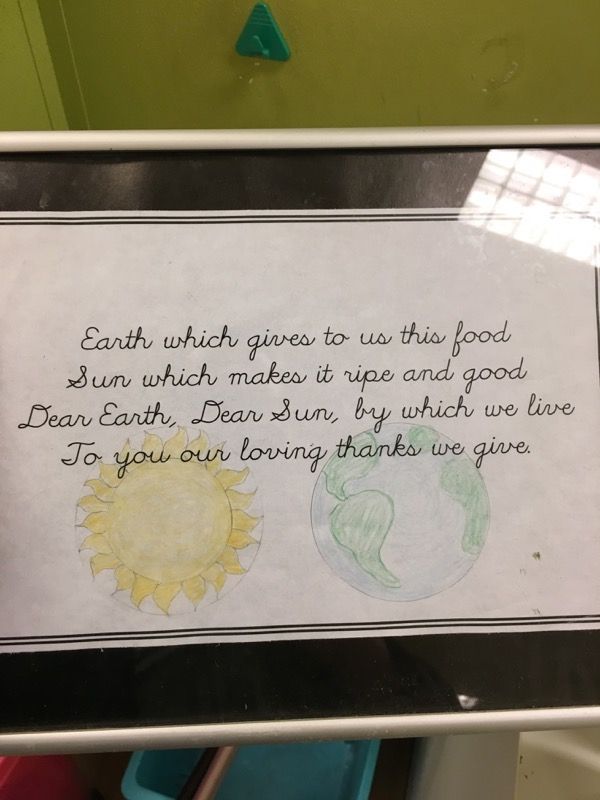 Earth which gives to us this food
Sun which makes it ripe and good
Dear Earth, Dear Sun, by which we live
To you our loving thanks we give.